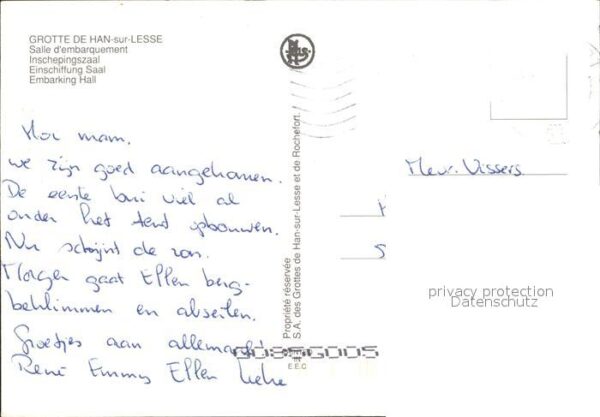 GROTTE DE HAN-sur-LESSE
Salle d'embarquement
Inschepingszaal
Einschiffung Saal
Embarking Hall
Hoi mam,
we zijn goed aangekomen.
De eerste bui viel al
onder het tent opbouwen.
Nu schijnt de zon.
Morgen gaat Ellen berg-
beklimmen en abseilen.
Groetjes aan allemaal!
René Emmy Ellen Lieke
Propriété réservée
S.A. des Grottes de Han-sur-Lesse et de Rochefort.
E.E.C
Mevr. Vissers
privacy protection
Datenschutz